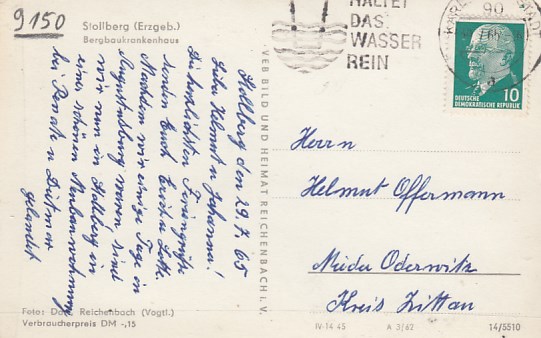 9150
Stollberg (Erzgeb.)
Bergbaukrankenhaus
HALTET
DAS
WASSER
REIN
KARL-MARX-STADT
90
DEUTSCHE
DEMOKRATISCHE REPUBLIK
10
VEB BILD UND HEIMAT REICHENBACH i. V.
Stollberg den 29.7.65
Liebe Helmut u Johanna!
Die herzlichsten Feriengrüße
senden Euch Erich u. Lotte.
Nachdem wir einige Tage in
Augustusburg waren sind
wir nun in Stollberg in
einer schönen Neubauwohnung
bei Renate u Dietmar
gelandet
Herrn
Helmut Offermann
Nieder Oderwitz
Kreis Zittau
Foto: Reichenbach (Vogtl.)
Verbraucherpreis DM -,15
IV-14-45 A 3/62 14/5510